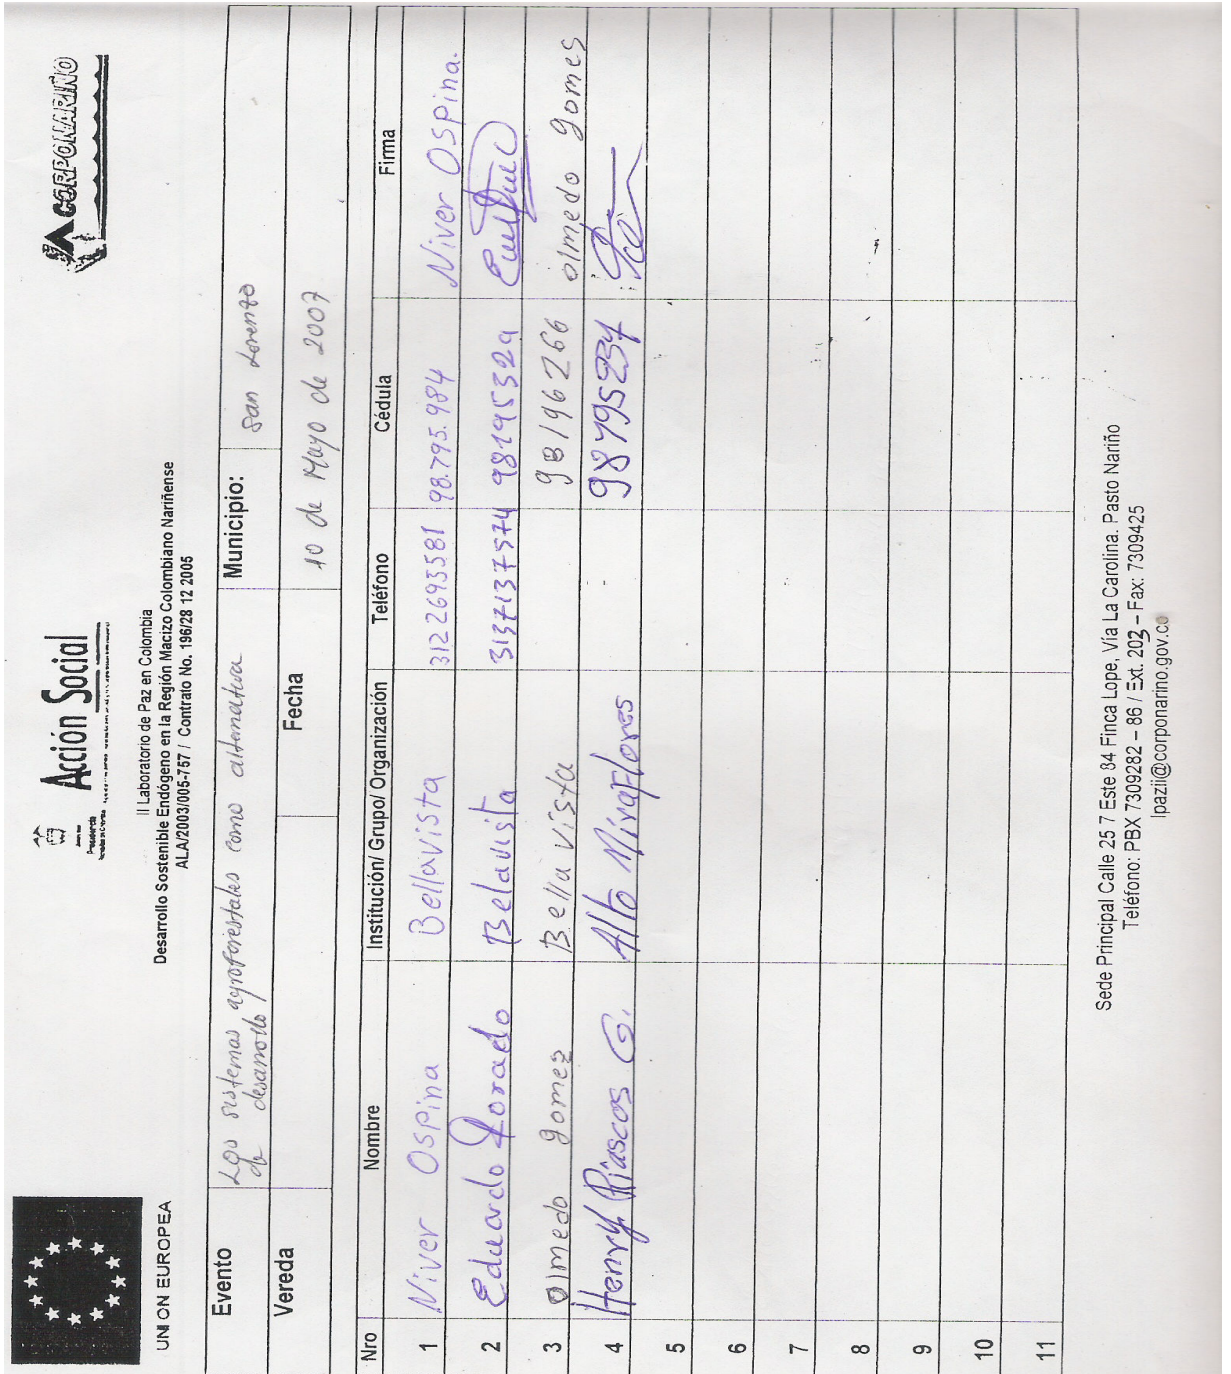 UNION EUROPEA
Acción Social
CORPONARIÑO
II Laboratorio de Paz en Colombia
Desarrollo Sostenible Endógeno en la Región Macizo Colombiano Nariñense
ALA/2003/005-757 / Contrato No. 196/28 12 2005
Evento Los sistemas agroforestales como alternativa Municipio: San Lorenzo
de desarrollo
Vereda Fecha 10 de Mayo de 2007
Nro Nombre Institución/ Grupo/ Organización Teléfono Cédula Firma
1 Niver Ospina Bellavista 3122695581 98.795.984 Niver Ospina.
2 Eduardo Dorado Belavista 3137137574 98795329
3 olmedo gomez Bella vista 98196266 olmedo gomes
4 Henry Riascos G. Alto Miraflores 98795234
5
6
7
8
9
10
11
Sede Principal Calle 25 7 Este 84 Finca Lope, Vía La Carolina. Pasto Nariño
Teléfono: PBX 7309282 – 86 / Ext. 202 – Fax: 7309425
lpazii@corponarino.gov.co